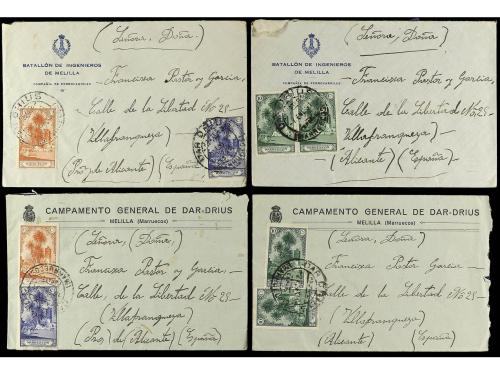 (Señora, Doña)
BATALLÓN DE INGENIEROS
DE MELILLA
COMPAÑIA DE FERROCARRILES
Francisca Pastor y Garcia,
Calle de la Libertad No 25-
Villafranqueza
Prov. de Alicante (España)
(Señora, Doña)
BATALLÓN DE INGENIEROS
DE MELILLA
COMPAÑIA DE FERROCARRILES
Francisca Pastor y Garcia,
Calle de la Libertad No 25-
Villafranqueza
(Alicante) (España)
CAMPAMENTO GENERAL DE DAR-DRIUS
MELILLA (Marruecos)
(Señora, Doña)
Francisca Pastor y Garcia,
Calle, de la Libertad No 25-
Villafranqueza
(Prov) de Alicante (España)
CAMPAMENTO GENERAL DE DAR-DRIUS
MELILLA (Marruecos)
(Señora, Doña)
Francisca Pastor y Garcia,
Calle de la Libertad No 25-
(Villafranqueza)
Alicante) (España)